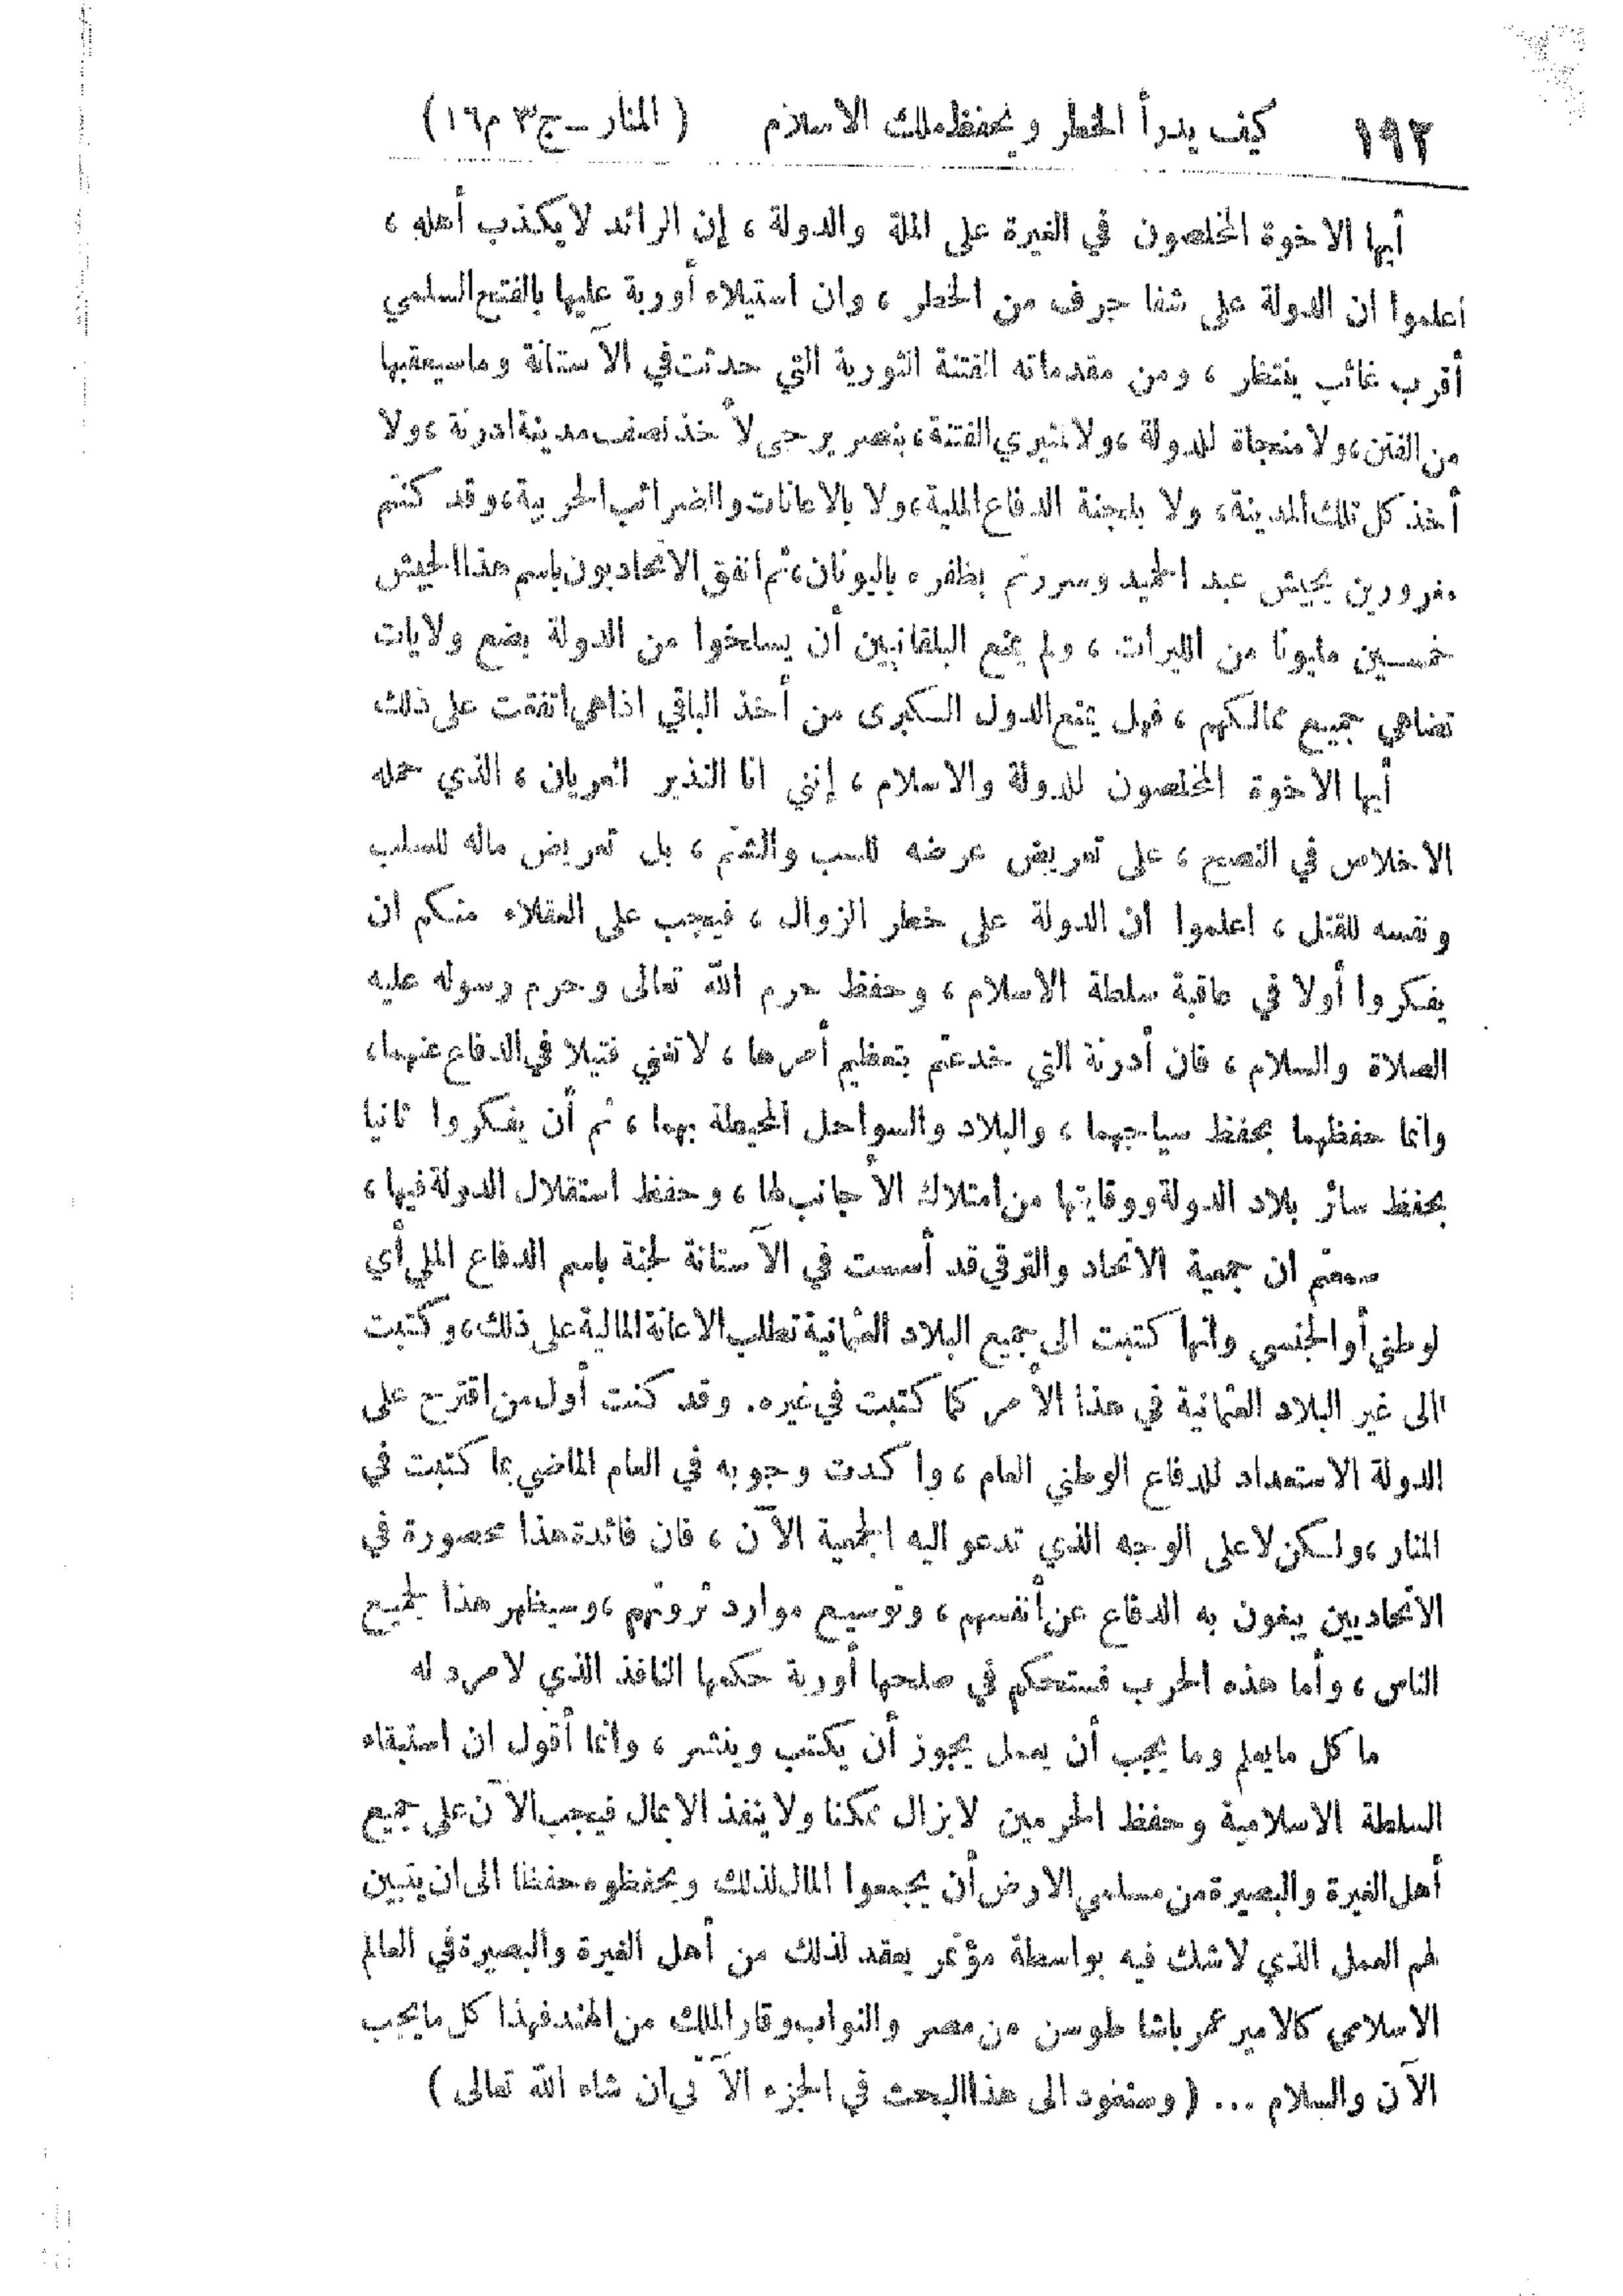 ١٩٢ كيف يدرأ الخطر ويحفظ ملك الاسلام (المنار ـ ج ٣ م ١٦)
أيها الاخوة المخلصون في الغيرة على الملة والدولة ، إن الرائد لا يكذب أهله ،
اعلموا ان الدولة على شفا جرف من الخطر ، وان استيلاء أوربة عليها بالفتح السلمي
أقرب غائب ينتظر ، ومن مقدماته الفتنة الثورية التي حدثت في الآستانة وما سيعقبها
من الفتن ، ولا منجاة للدولة ، ولا لمثيري الفتنة ، بنصر يرجى لأخذ نصف مدينة ادرنة ، ولا
أخذ كل تلك المدينة ، ولا بلجنة الدفاع الملية ، ولا بالاعانات والضرائب الحربية ، وقد كنتم
مغرورين بجيش عبد الحميد وسررتم بظفره باليونان ، ثم انفق الاتحاديون باسم هذا الجيش
خمسين مليونا من الليرات ، ولم يمنع البلقانيين أن يسلخوا من الدولة بضع ولايات
تضاهي جميع ممالكهم ، فهل يمنع الدول الكبرى من أخذ الباقي اذا هي اتفقت على ذلك
أيها الاخوة المخلصون للدولة والاسلام ، إنني انا النذير العريان ، الذي حمله
الاخلاص في النصح ، على تعريض عرضه للسب والشتم ، بل تعريض ماله للسلب
ونفسه للقتل ، اعلموا ان الدولة على خطر الزوال ، فيجب على العقلاء منكم ان
يفكروا أولا في عاقبة سلطة الاسلام ، وحفظ حرم الله تعالى وحرم رسوله عليه
الصلاة والسلام ، فان أدرنة التي خدعتم بتعظيم أمرها ، لا تغني فتيلا في الدفاع عنهما ،
وانما حفظهما بحفظ سياجهما ، والبلاد والسواحل المحيطة بهما ، ثم أن يفكروا ثانيا
بحفظ سائر بلاد الدولة ووقايتها من امتلاك الأجانب لها ، وحفظ استقلال الدولة فيها ،
سمعتم ان جمعية الاتحاد والترقي قد أسست في الآستانة لجنة باسم الدفاع الملي أي
لوطني أو الجنسي وانها كتبت الى جميع البلاد العثمانية تطلب الاعانة المالية على ذلك ، وكتبت
الى غير البلاد العثمانية في هذا الأمر كما كتبت في غيره . وقد كنت أول من اقترح على
الدولة الاستعداد للدفاع الوطني العام ، واكدت وجوبه في العام الماضي بما كتبت في
المنار ، ولكن لا على الوجه الذي تدعو اليه الجمعية الآن ، فان فائدة هذا محصورة في
الاتحاديين يبغون به الدفاع عن أنفسهم ، وتوسيع موارد ثروتهم ، وسيظهر هذا لجميع
الناس ، وأما هذه الحرب فستحكم في صلحها أوربة حكمها النافذ الذي لا مرد له
ما كل ما يعلم وما يجب أن يعمل يجوز أن يكتب وينشر ، وانما أقول ان استبقاء
السلطة الاسلامية وحفظ الحرمين لا يزال ممكنا ولا ينفذ الا بمال فيجب الآن على جميع
أهل الغيرة والبصيرة من مسلمي الارض أن يجمعوا المال لذلك ويحفظوه حفظا الى ان يتبين
لهم العمل الذي لا شك فيه بواسطة مؤتمر يعقد لذلك من أهل الغيرة والبصيرة في العالم
الاسلامي كالامير عمر باشا طوسن من مصر والنواب وقار الملك من الهند فهذا كل ما يجب
الآن والسلام ... (وسنعود الى هذا البحث في الجزء الآتي ان شاء الله تعالى)